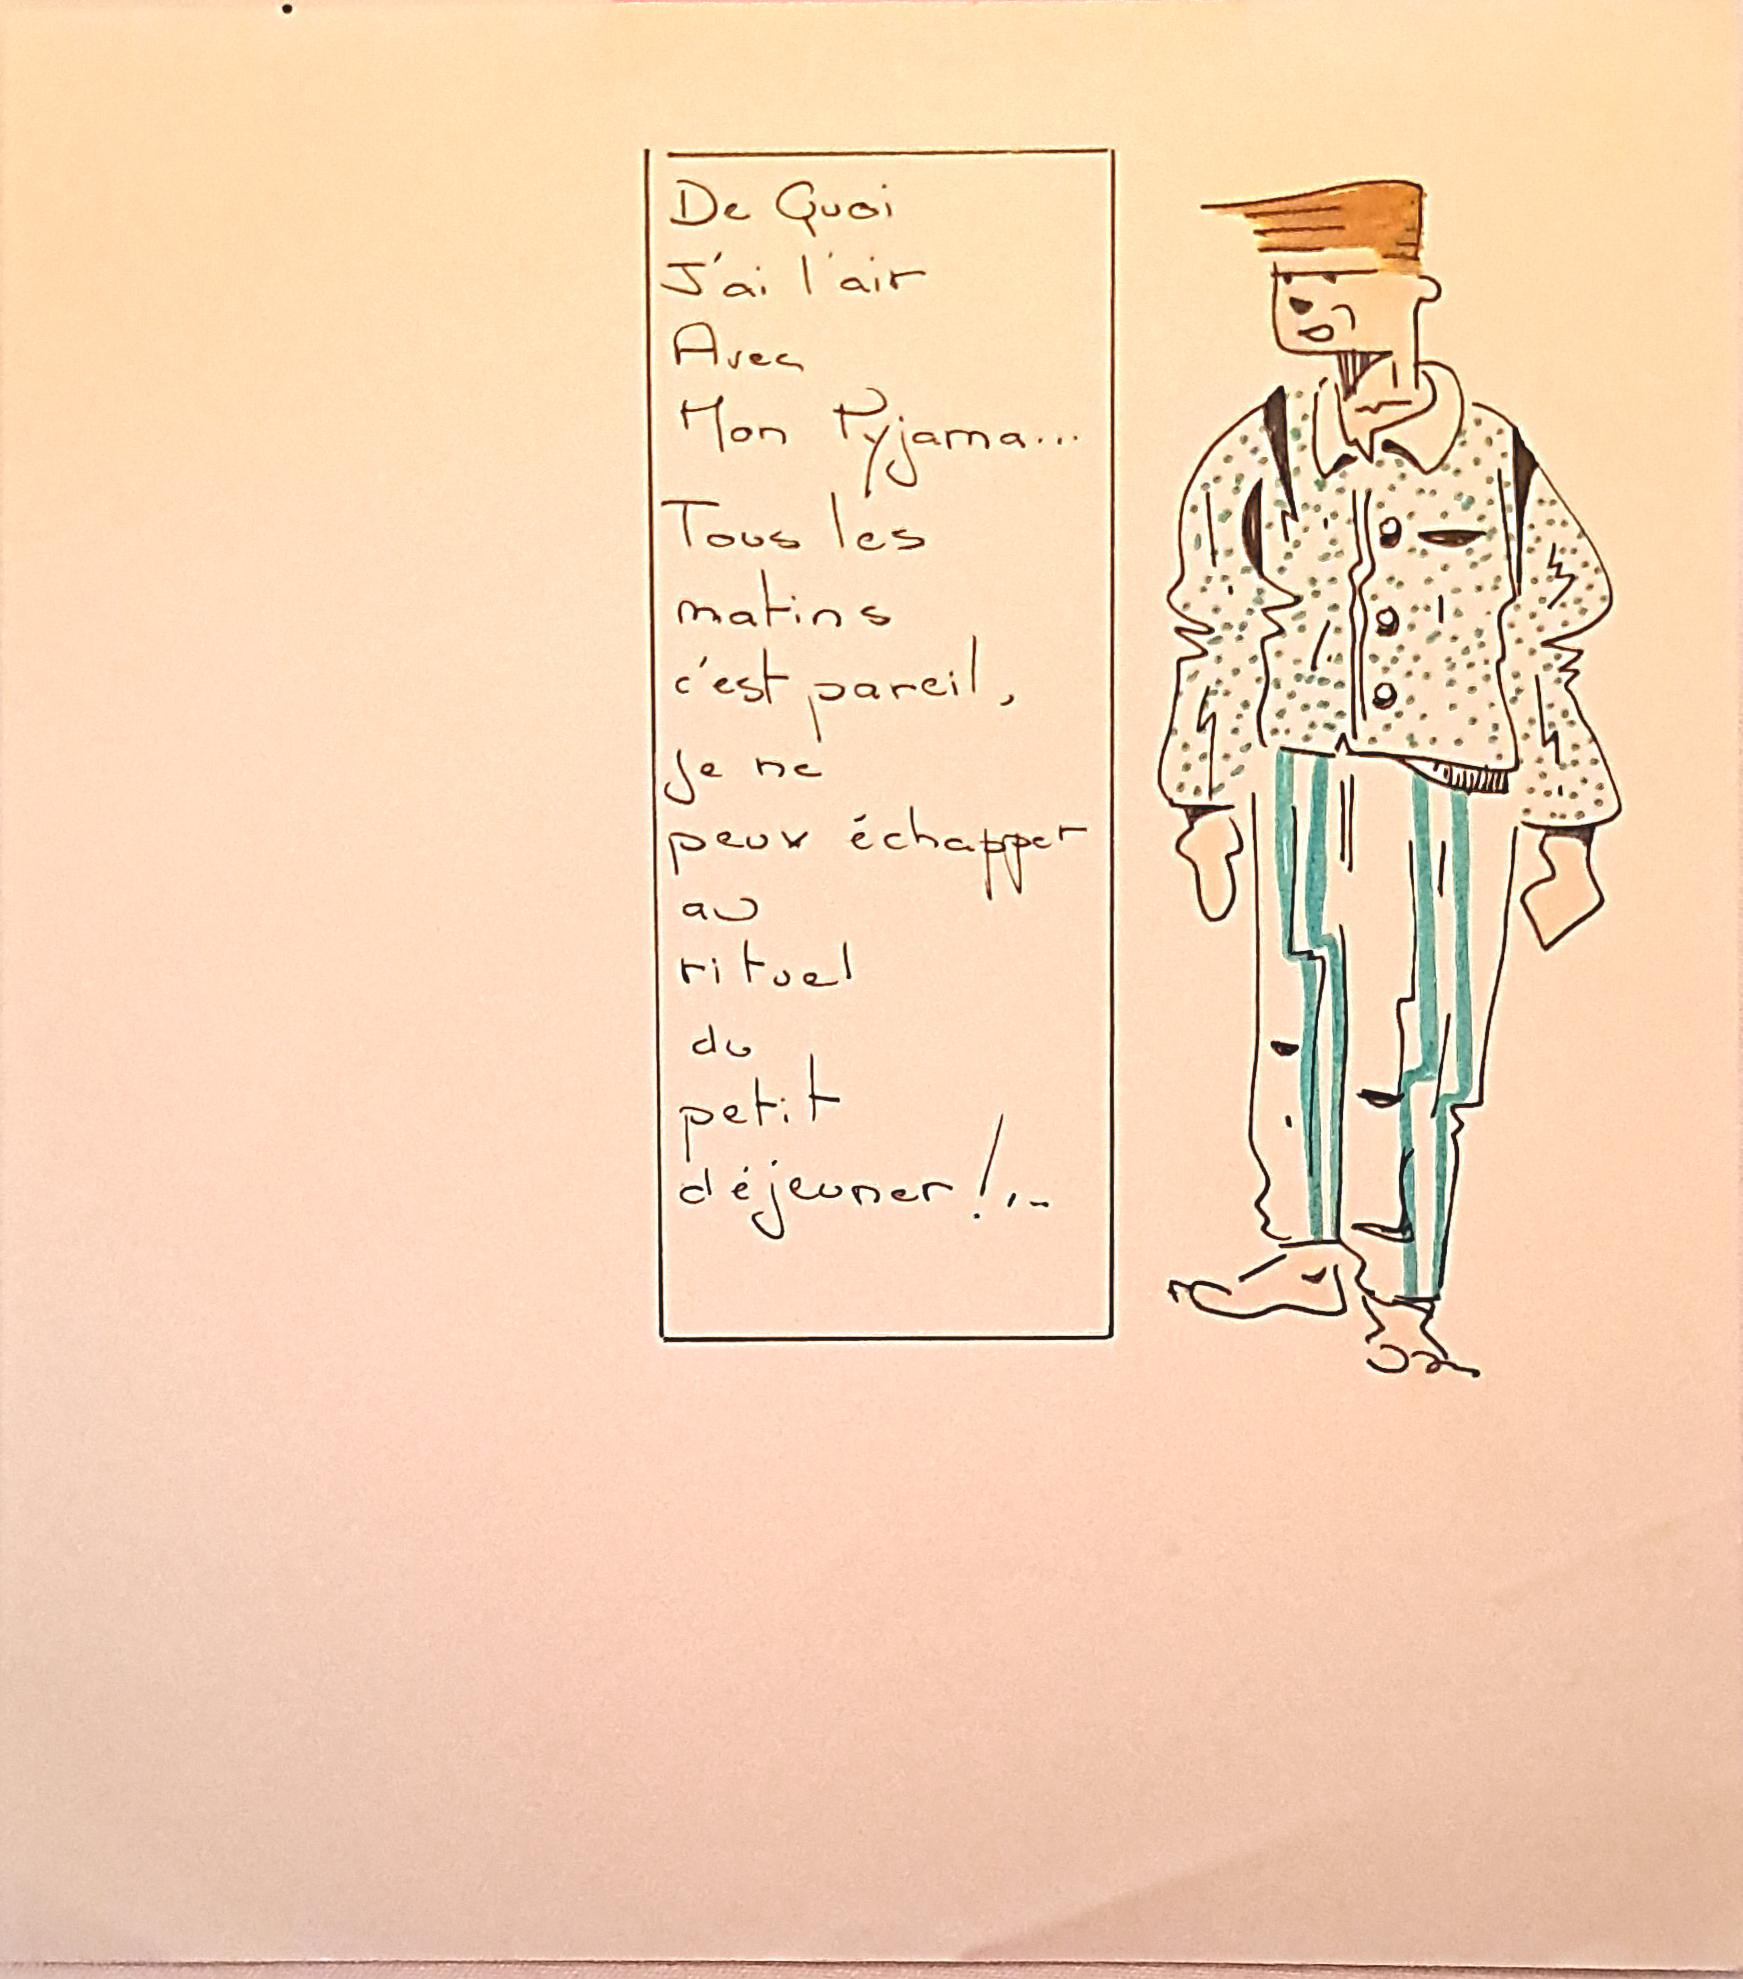 De Quoi
J'ai l'air
Avec
Mon Pyjama...
Tous les
matins
c'est pareil,
je ne
peux échapper
au
rituel
du
petit
déjeuner!..